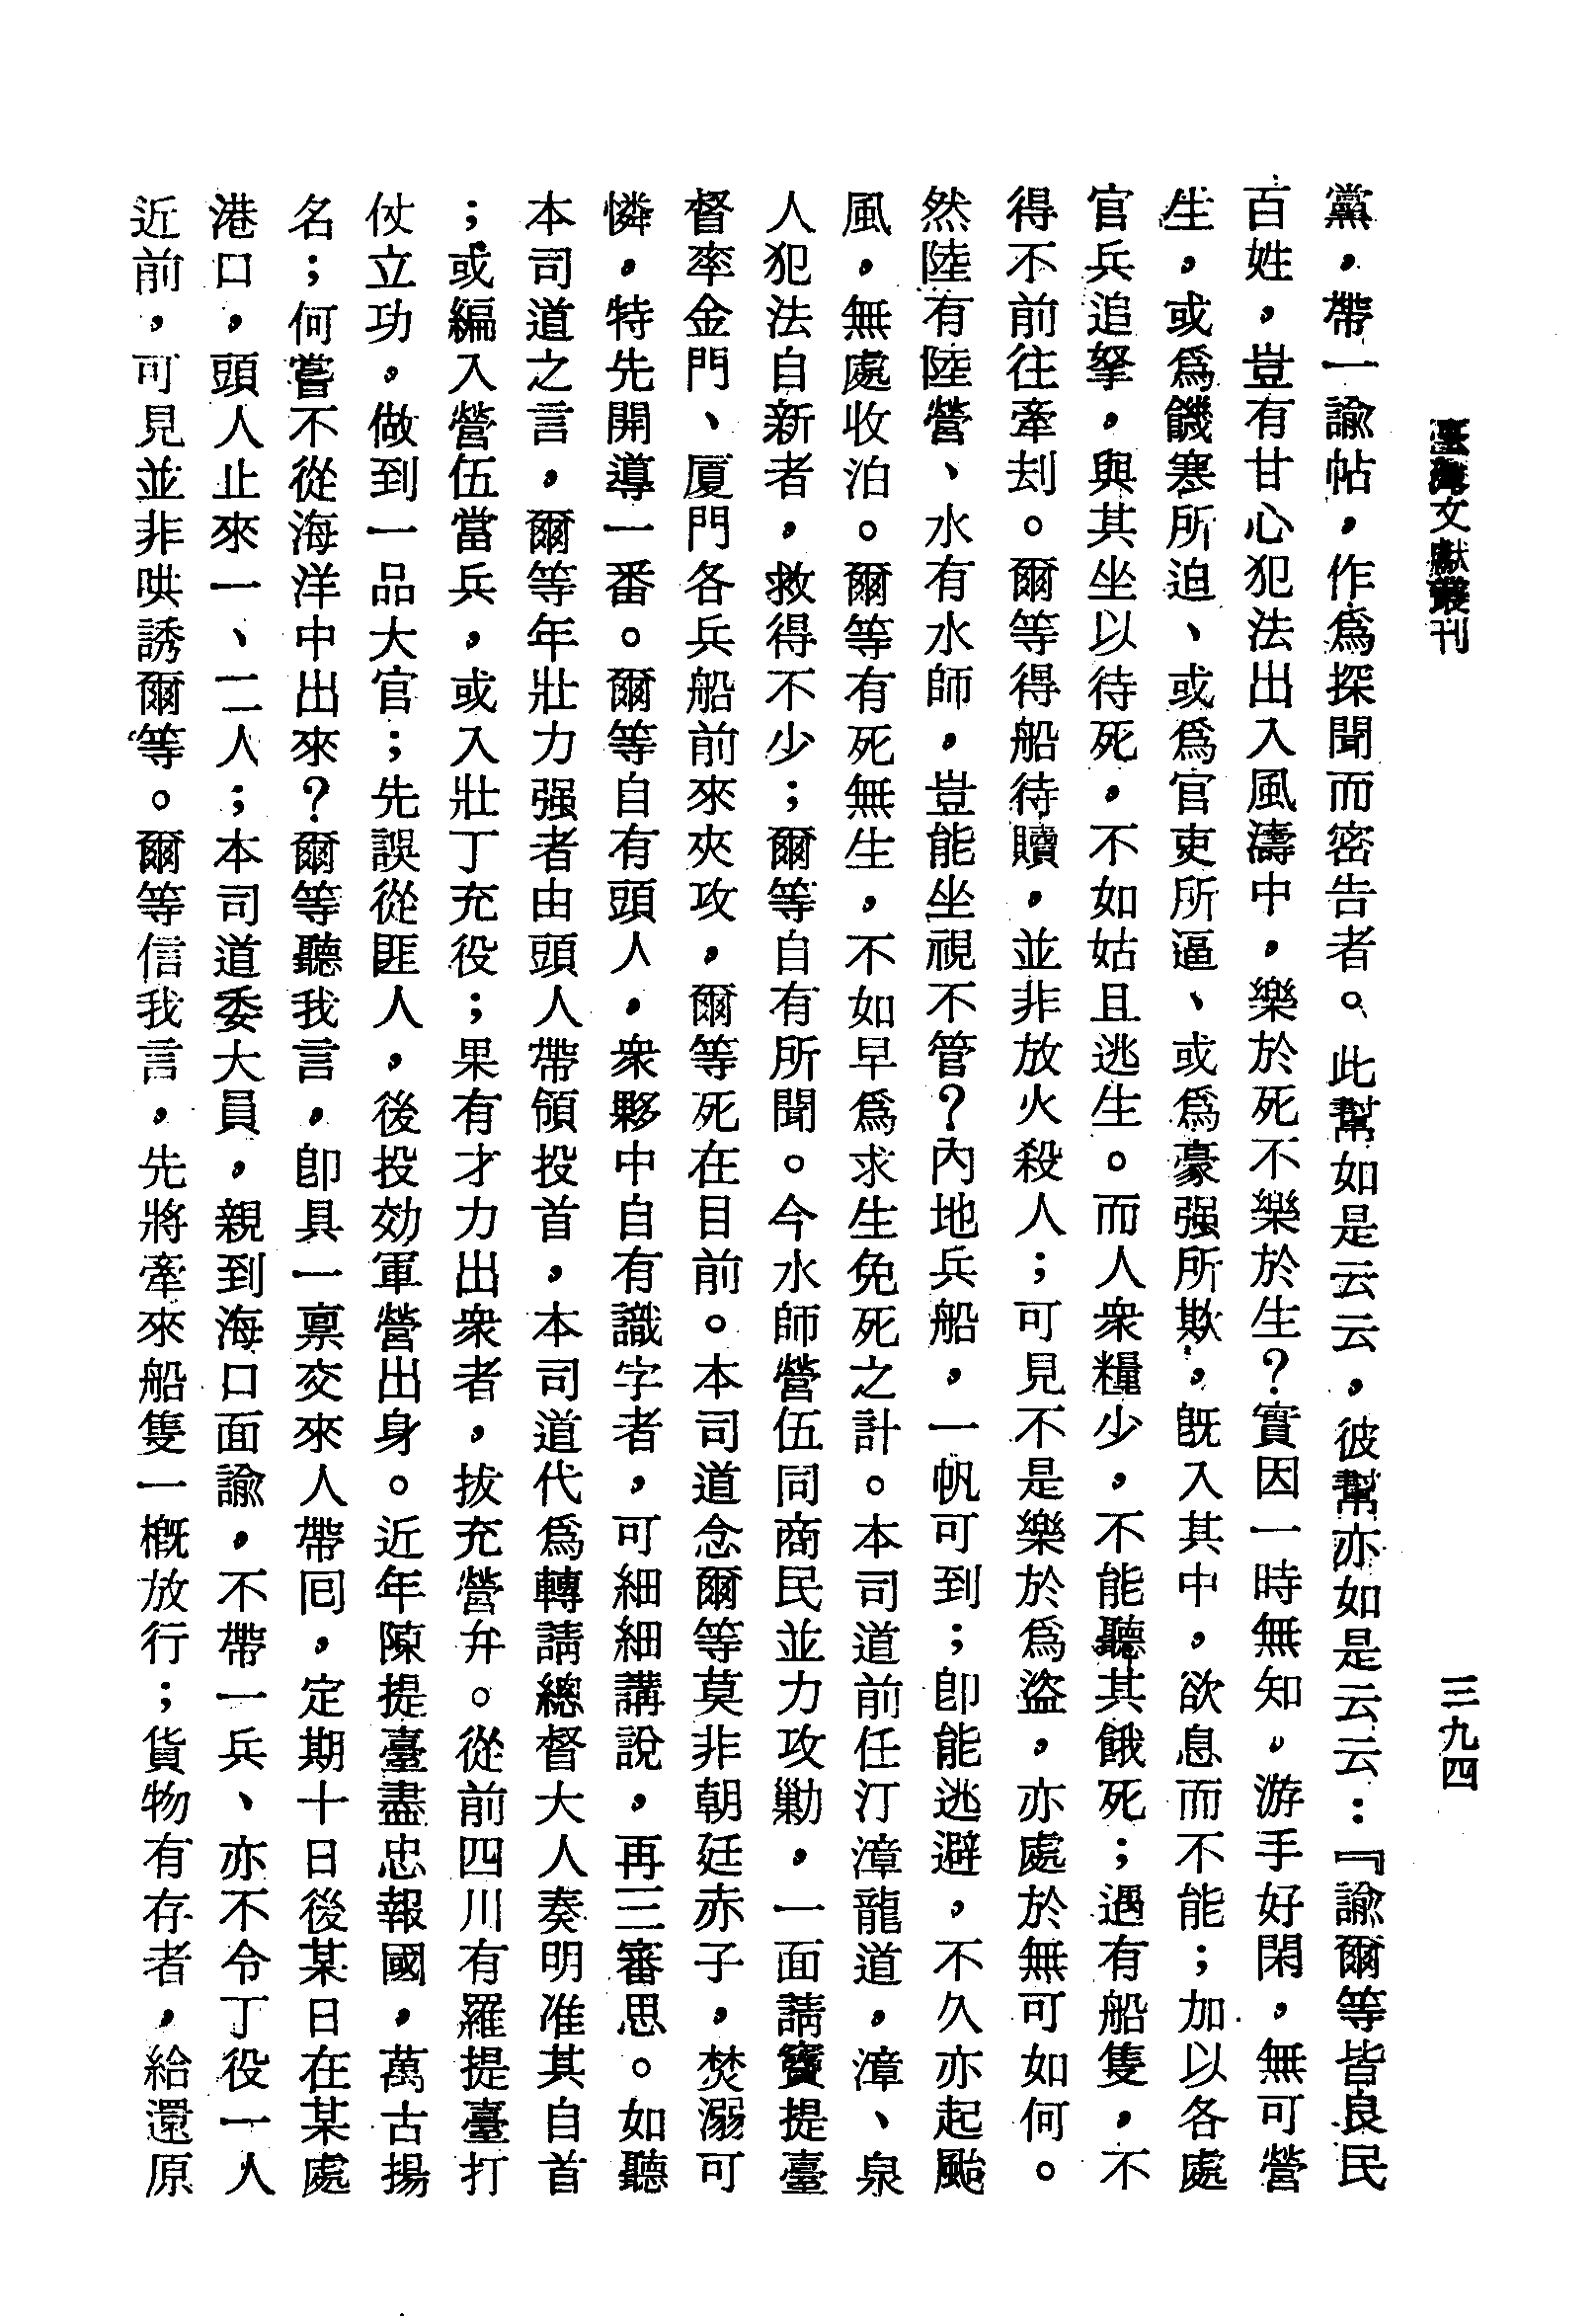 臺灣文獻叢刊
三九四
黨，帶一諭帖，作爲探聞而密告者。此幫如是云云，彼幫亦如是云云：『諭爾等皆良民
百姓，豈有甘心犯法出入風濤中，樂於死不樂於生？實因一時無知，游手好閑，無可營
生，或爲饑寒所迫、或爲官吏所逼、或爲豪强所欺，旣入其中，欲息而不能；加以各處
官兵追拏，與其坐以待死，不如姑且逃生。而人衆糧少，不能聽其餓死；遇有船隻，不
得不前往牽刦。爾等得船待贖，並非放火殺人；可見不是樂於爲盜，亦處於無可如何。
然陸有陸營、水有水師，豈能坐視不管？內地兵船，一帆可到；卽能逃避，不久亦起颱
風，無處收泊。爾等有死無生，不如早爲求生免死之計。本司道前任汀漳龍道，漳、泉
人犯法自新者，救得不少；爾等自有所聞。今水師營伍同商民並力攻勦，一面請竇提臺
督率金門、厦門各兵船前來夾攻，爾等死在目前。本司道念爾等莫非朝廷赤子，焚溺可
憐，特先開導一番。爾等自有頭人，衆夥中自有識字者，可細細講說，再三審思。如聽
本司道之言，爾等年壯力强者由頭人帶領投首，本司道代爲轉請總督大人奏明准其自首
；或編入營伍當兵，或入壯丁充役；果有才力出衆者，拔充營弁。從前四川有羅提臺打
仗立功，做到一品大官；先誤從匪人，後投効軍營出身。近年陳提臺盡忠報國，萬古揚
名；何嘗不從海洋中出來？爾等聽我言，卽具一禀交來人帶囘，定期十日後某日在某處
港口，頭人止來一、二人；本司道委大員，親到海口面諭，不帶一兵、亦不令丁役一人
近前，可見並非哄誘爾等。爾等信我言，先將牽來船隻一概放行；貨物有存者，給還原